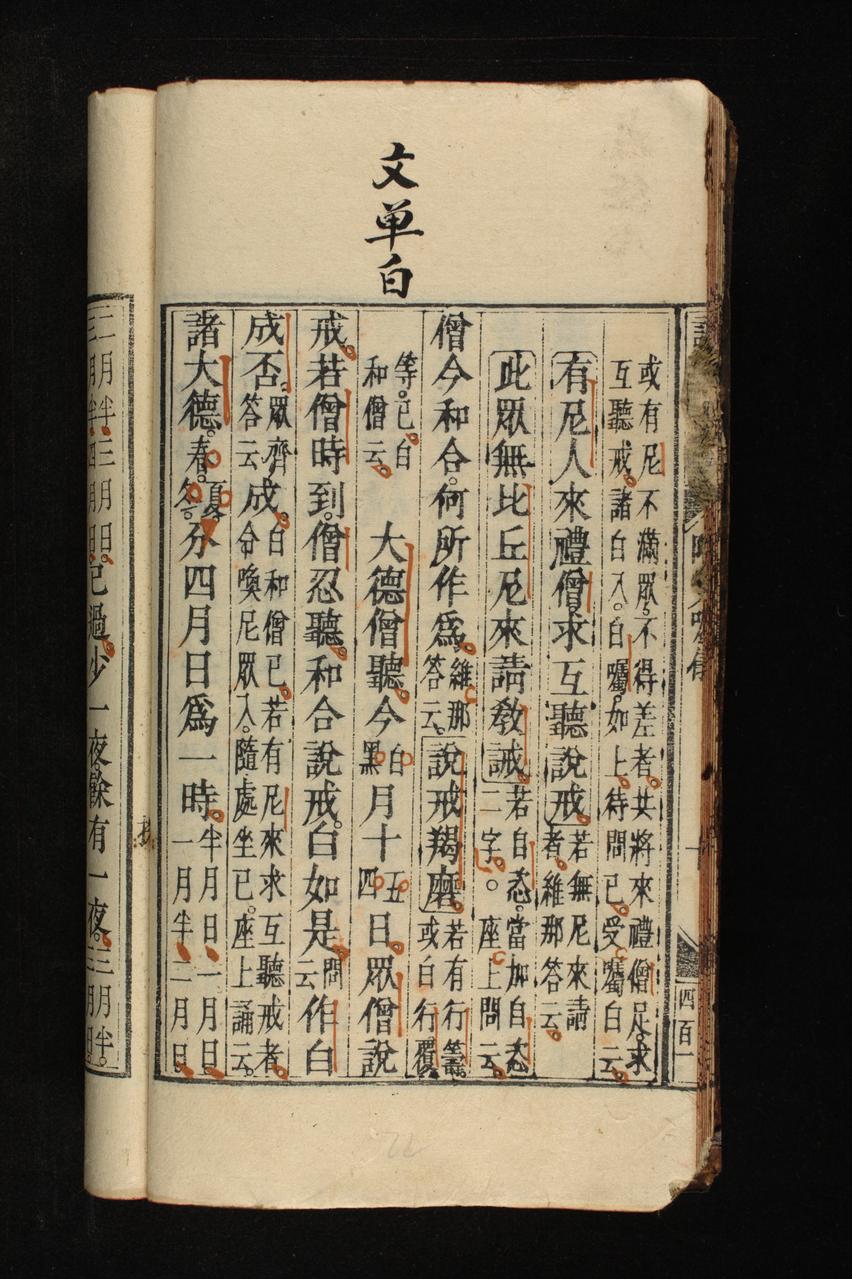 文単白
或有尼不滿眾。不得差者。共將來禮僧足。求
互聽戒。諸白入。白囑。如上。待問已。受囑白云。
有尼人來禮僧。求互聽說戒。若無尼來請
者。維那答云。
此眾無比丘尼來請教誡。若自恣。當加自恣
二字。。座上問云。
僧今和合。何所作為。維那
答云。
說戒羯磨。若有行籌。
或白行覆
等。已白
和僧云。
大德僧聽。今白
黑
月十五
四
日。眾僧說
戒。若僧時到。僧忍聽。和合說戒。白如是。問
云
作白
成否。眾齊
答云
成。白和僧已。若有尼來求互聽戒者。
命喚尼眾入。隨處坐已。座上誦云。
諸大德。春。夏。
冬。
分四月日為一時。半月日。一月日。
一月半。二月日。
二月半。三月日。
三月半。四月日。
已過。少一夜。餘有一夜。三月半。
四百一